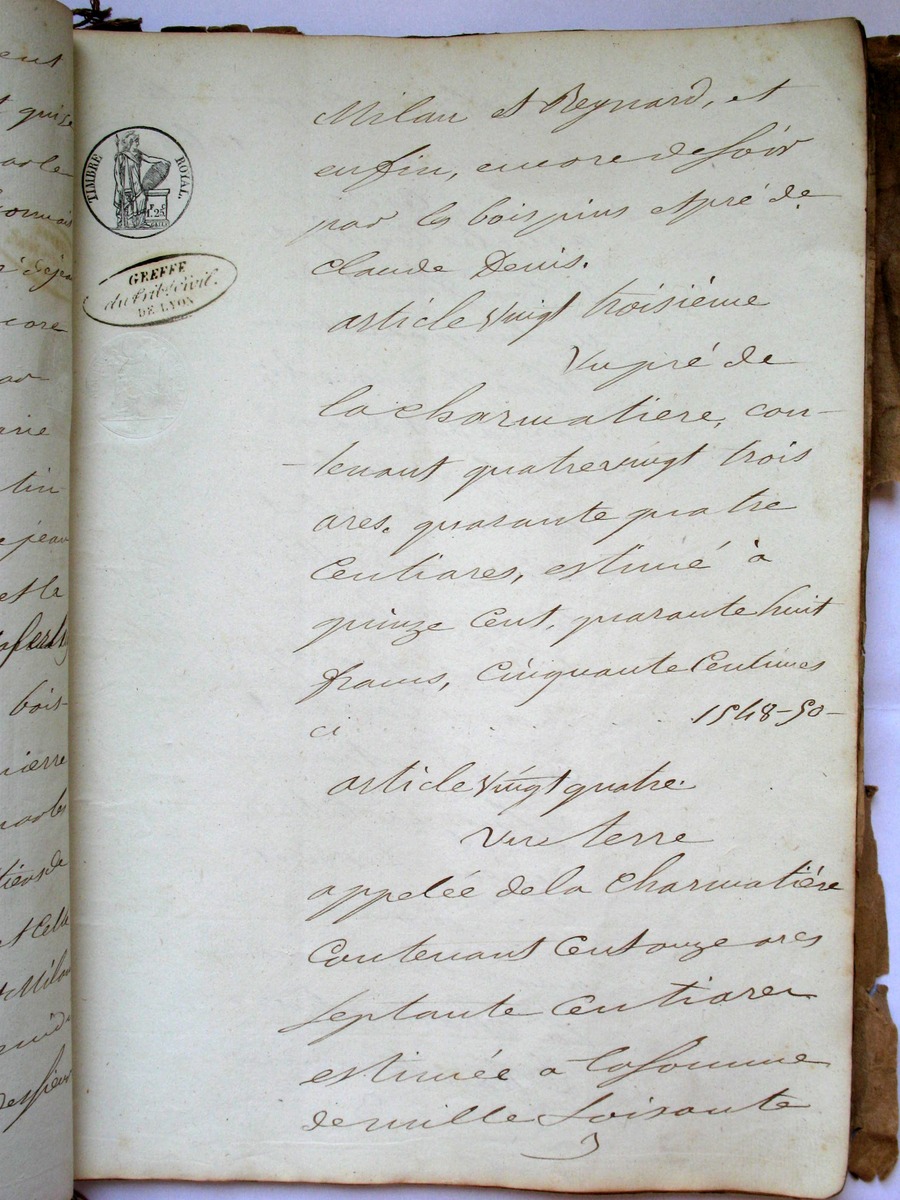 TIMBRE ROYAL.
1.F 25.C
GREFFE
du Trib. Civil.
DE LYON
Milan et Reynard, et
enfin, encore de soir
par les bois pins et pré de
Claude Denis.
article vingt troisième
Un pré de
la charmatiere, con-
tenant quatrevingt trois
ares, quarante quatre
Centiares, estimé à
quinze Cent, quarante huit
francs, Cinquante Centimes
ci . . . 1548-50-
article vingt quatre.
Une terre
appelée de la Charmatière
Contenant Cent onze ares
Septante Centiares
estimée a la somme
de mille soisante